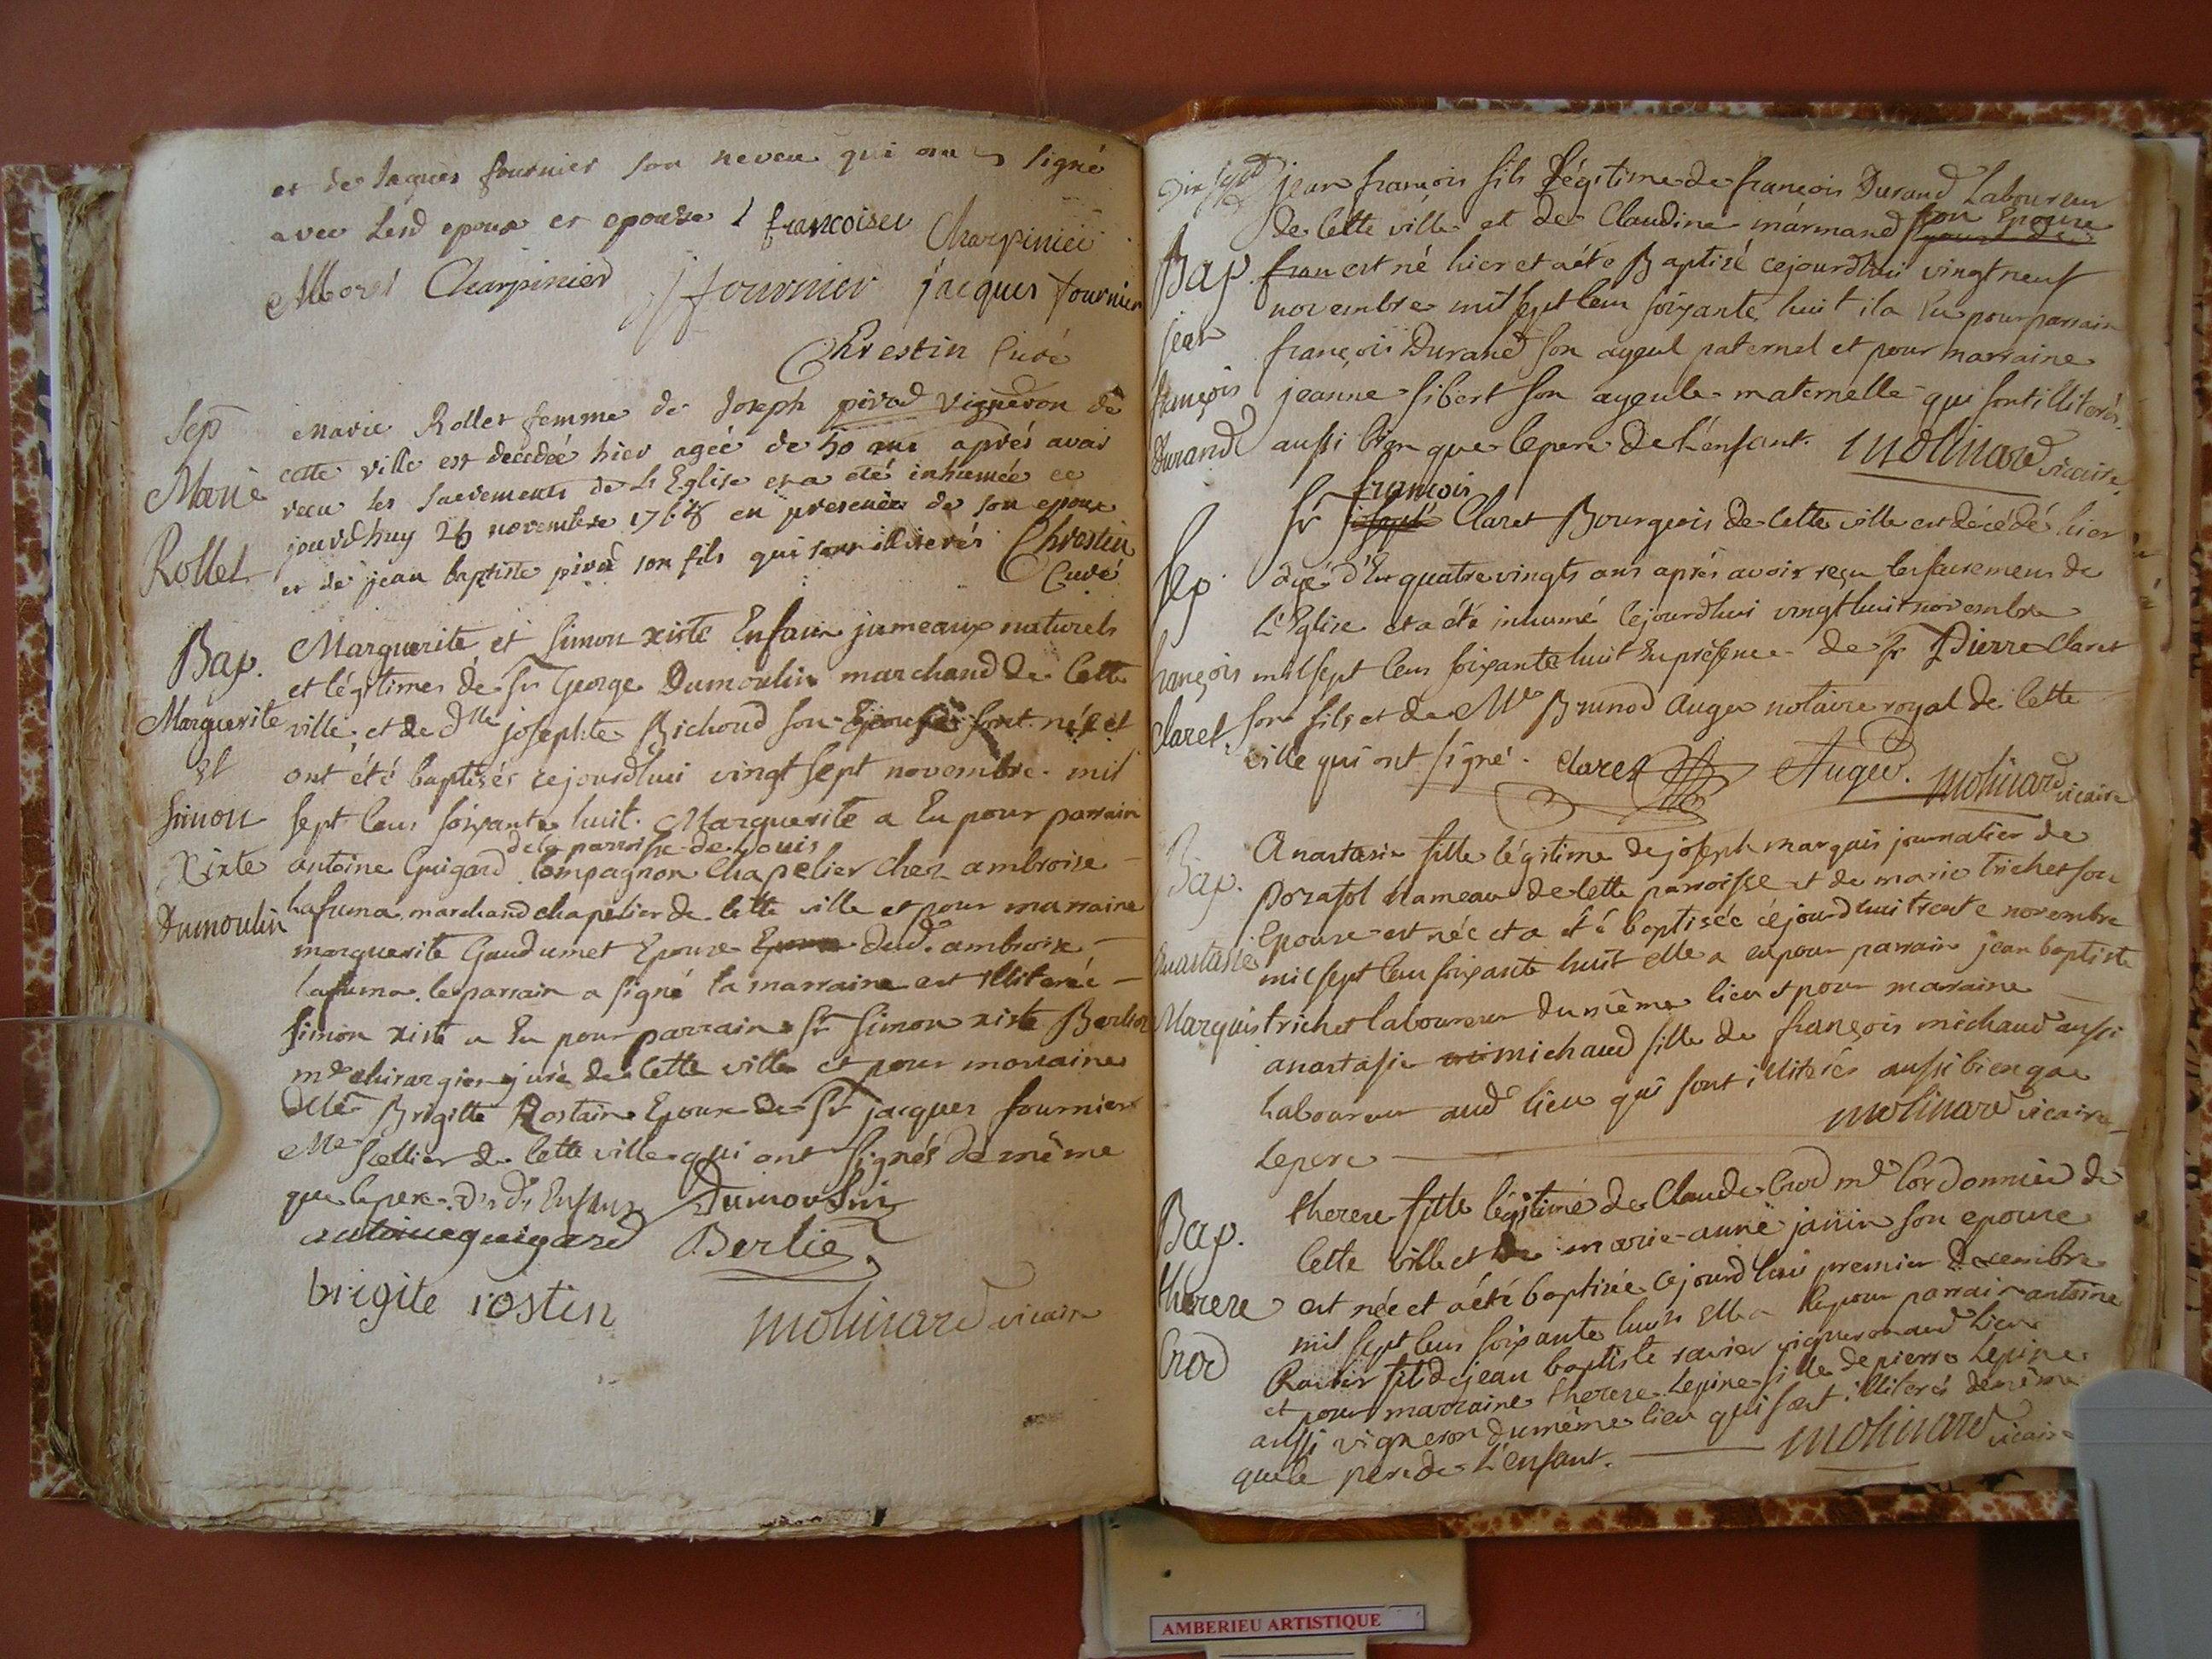 et de Jaques fournier son neveu qui ont signé
avec Lesd epoux et epouse francoise Charpinier
Charpinier fournier jacques fournier
Chrestin Curé
Sep
Marie
Rollet
Marie Rollet femme de Joseph pivad Vigneron de
cette ville est decedée hier agée de 50 ans aprés avoir
recu les sacrements de L Eglise et a été inhumée ce
jourdhuy 26 novembre 1768 en presence de son epoux
et de jean baptiste pivad son fils qui sont illiterés Chrestin
Curé
Bap.
Marguerite
et
Simon
Xixte
Dumoulin
Marguerite et Simon xiste Enfans jumeaux naturels
et légitimes de Sr George Dumoulin marchand de Cette
ville, et de dlle josephte Bichoud son Epouse sont nés et
ont été baptisés cejourdhui vingt sept novembre mil
sept Cens soixante huit. Marguerite a Eu pour parrain
de la parroisse de Louis
antoine Guigard Compagnon Chapelier chez ambroise
Lafuma marchand chapelier de Cette ville et pour marraine
marguerite Gaudumet Epouse dud. ambroise
Lafuma. le parrain a signé la marraine est illiterée
Simon xiste a Eu pour parrain Sr Simon xiste Berlioz
me chirurgien juré de Cette ville et pour marraine
dlle Brigitte Rostain Epouse de Sr jacques fournier
Me Sellier de Cette ville qui ont signés de même
que le pere. Dsds Enfans Dumoulin
antoine guigard Berlie
brigite rostin
molinard vicaire
Bap.
jean
françois
Durand
jean françois fils légitime de françois Durand Laboureur
de Cette ville et de Claudine marmand son Epouse
fran est né hier et a été Baptisé cejourdhui vingt neuf
novembre mil sept Cens soixante huit il a Eu pour parrain
françois Durand son ayeul paternel et pour marraine
jeanne sibert son ayeule maternelle qui sont illiterés.
aussi bien que le pere de L'enfant. molinard vicaire
Sep
françois
Claret
françois
Sr joseph Claret Bourgeois de Cette ville est décédé hier
agé d'En quatre vingts ans aprés avoir reçu les sacremens de
L'Eglise et a été inhumé Cejourdhui vingt huit novembre
mil sept Cens soixante huit En présence de Sr Pierre Claret
son fils et de Me Brunod Auger notaire royal de Cette
ville qui ont signé. Claret Auger. molinard vicaire
Bap.
Anastasie
Marquis
Anastasie fille légitime de joseph marquis journalier de
hameau de Cette parroisse et de marie trichet son
Epouse est née et a été baptisée cejourdhui trente novembre
mil sept Cens soixante huit elle a eu pour parrain jean baptiste
trichet laboureur du même lieu et pour marraine
anastasie michaud fille de françois michaud aussi
Laboureur aud lieu qui sont illiterés aussi bien que
le pere molinard vicaire
Bap.
therese
Crod
therese fille légitime de Claude Crod md Cordonnier de
Cette ville et de marie-anne janin son epouse
est née et a été baptisée Cejourdhui premier Decembre
mil sept Cens soixante huit Elle a Eu pour parrain antoine
Ravier fils de jean baptiste ravier vigneron aud Lieu
et pour marraine therese Lepine fille de pierre Lepine
aussi vigneron du même lieu qui sont illiterés de même
que le pere de L'enfant. molinard vicaire
AMBERIEU ARTISTIQUE